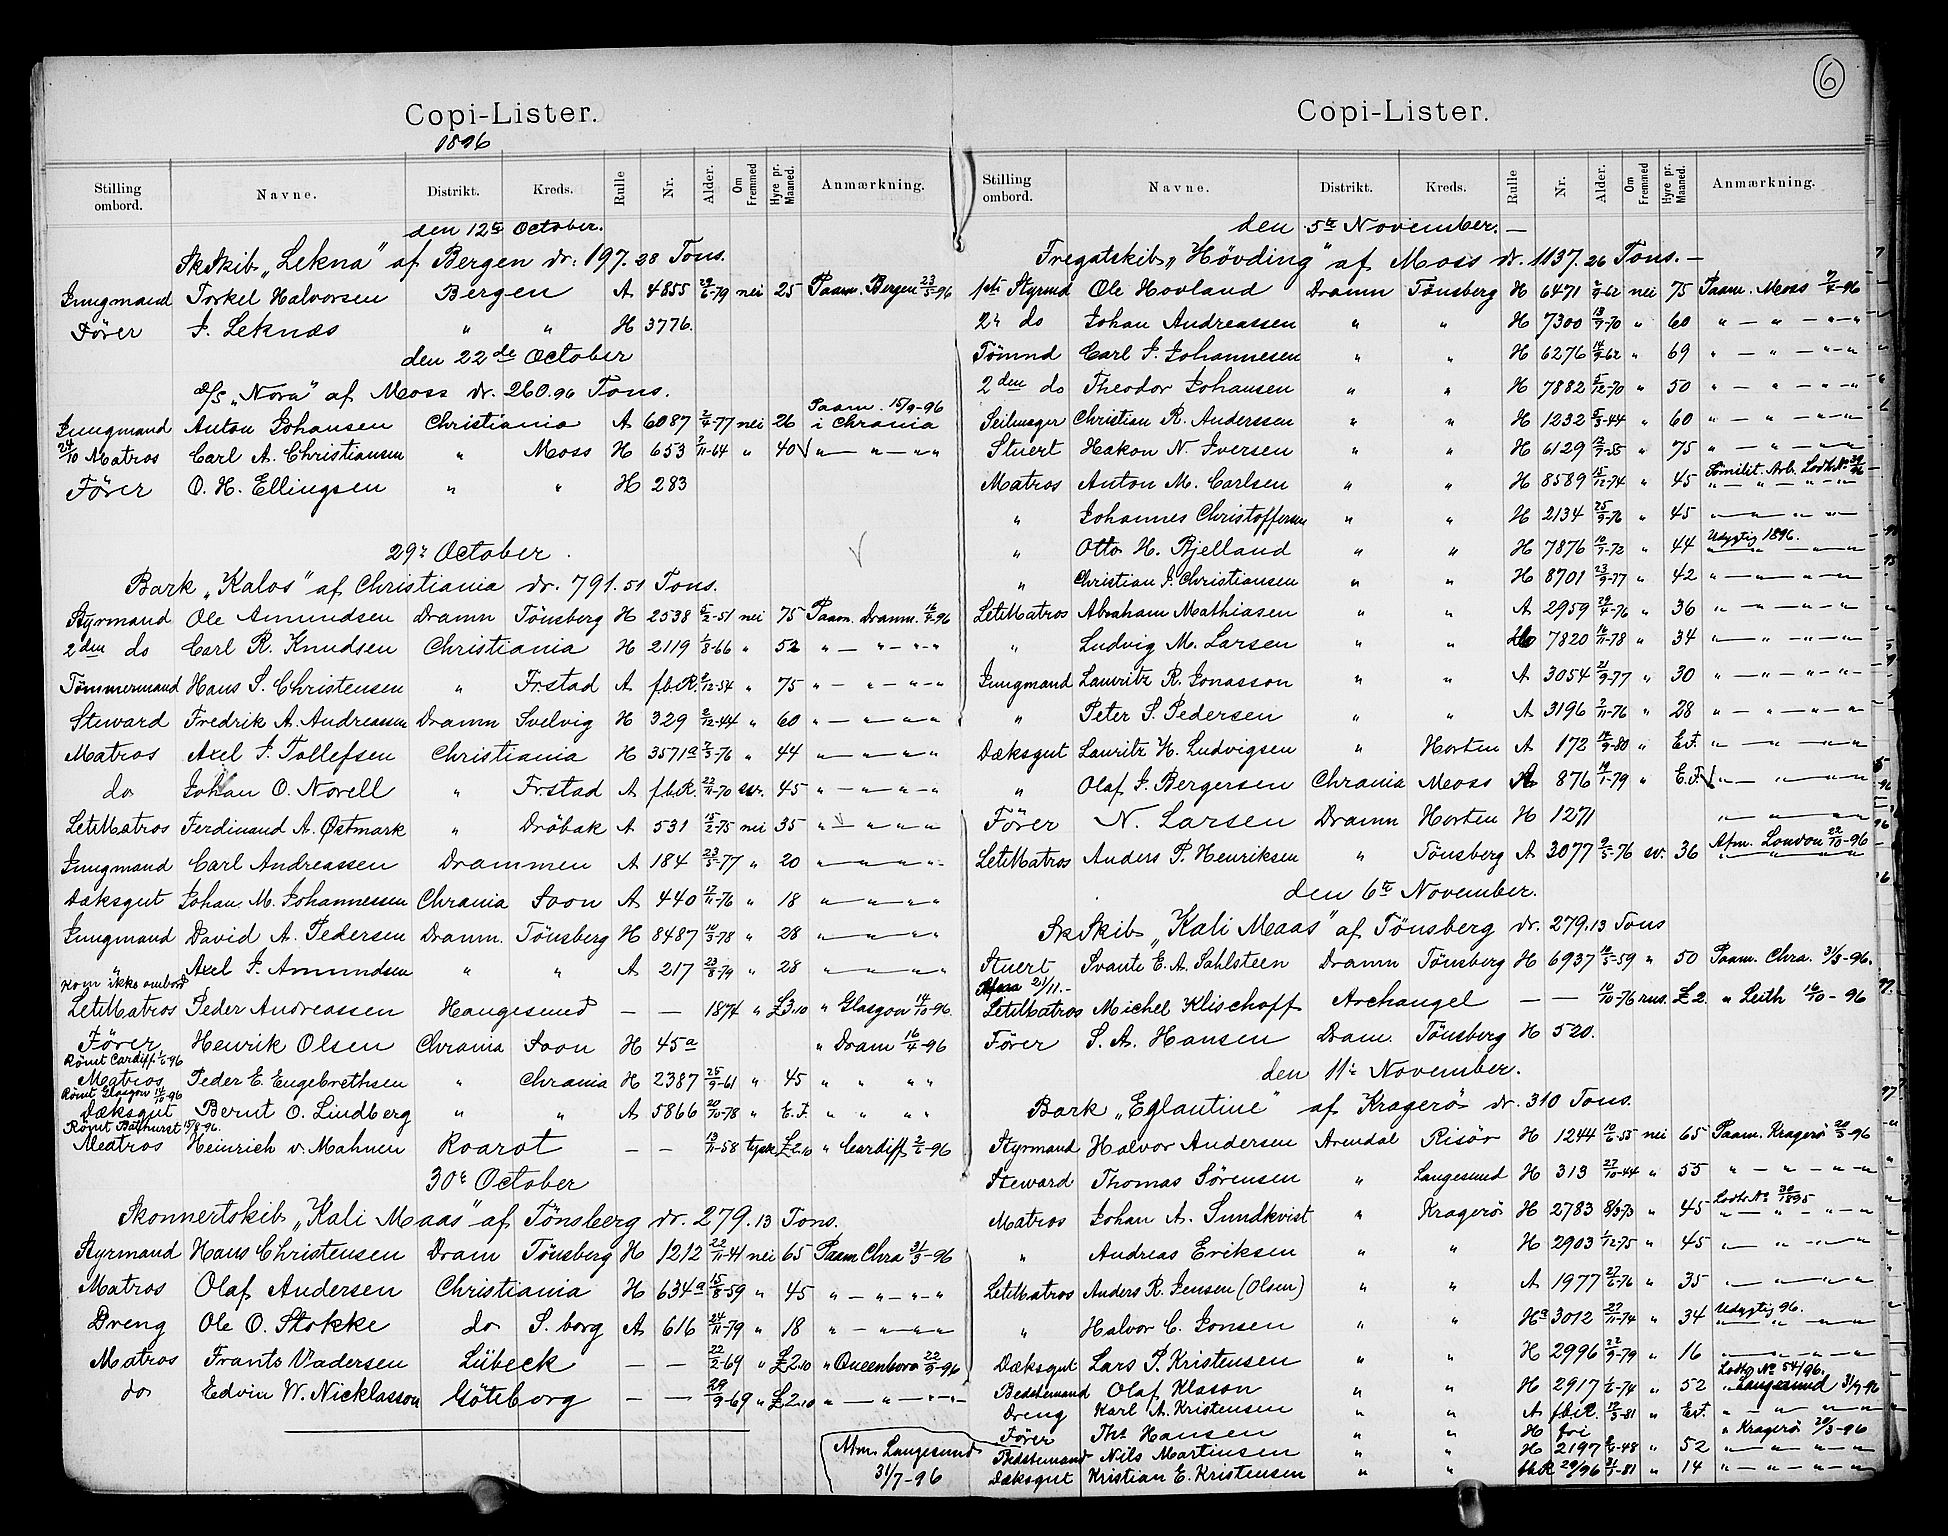 6
Copi-Lister.
1896
Stilling ombord. Navne. Distrikt. Kreds. Rulle Nr. Alder. Om Fremmed Hyre pr. Maaned. Anmærkning.
den 12te October.
SkSkib „Lekna” af Bergen dr: 197.28 Tons.
Jungmand Torkel Halvorsen Bergen A 4855 29/6-79 nei 25 Paam. Bergen 23/5-96
Fører J. Leknæs " " H 3776.
den 22de October
d/s „Nora” af Moss dr. 260.96 Tons.
Jungmand Anton Johansen Christiania A 6087 2/4-77 nei 26 Paam. 15/9-96 i Chrania
24/10 Matros Carl A. Christiansen " Moss H 653 2/11-64 " 40 " — " — " "
Fører O. H. Ellingsen " " H 283
29de October.
Bark „Kalos” af Christiania dr. 791.51 Tons.
Styrmand Ole Amundsen Dramn Tönsberg H 2538 5/2-51 nei 75 Paam. Dramn. 16/4-96
2den do Carl R. Knudsen Christiania H 2119 1/8-66 " 52 " — " — " "
Tömmermand Hans S. Christensen " Frstad A fbR. 9/12-54 " 75 " — " — " "
Steward Fredrik A. Andreassen Dramn Svelvig H 329 2/12-44 " 60 " — " — " "
Matros Axel J. Tollefsen Christiania H 3571a 7/3-76 " 44 " — " — " "
do Johan O. Norell " Frstad A fbR. 22/11-70 sv. 45 " — " — " "
LetMatros Ferdinand A. Østmark " Dröbak A 531 15/2-75 nei 35 " — " — " "
Jungmand Carl Andreassen Drammen A 184 23/5-77 " 20 " — " — " "
Dæksgut Johan. M. Johannessen Chrania Soon A 440 17/11-76 " 18 " — " — " "
Jungmand David A. Pedersen Dramn. Tönsberg H 8487 10/3-78 " 28 " — " — " "
" Axel J. Amundsen " " A 217 23/8-79 " 28 " — " — " "
kom ikke ombord
LetMatros Peder Andreassen Haugesund — — 1874 " £3.10 " Glasgow 14/10-96.
Fører Henrik Olsen Chrania Soon H 45a " Dram 16/4-96
Römt Cardiff 1/6-96
Matros Peder E. Engebrethsen " Chrania H 2387 25/9-61 " 45 " " " "
Römt Glasgow 14/10-96
Dæksgut Bernt O. Lindberg " " A 5866 20/10-78 " E.F. " " " "
Römt Bathurst 15/8-96.
Matros Heinrich v. Mahnen Roarot — — 13/11-58 tysk £2.10 " Cardiff 2/6-96
30te October
Skonnertskib „Kali Maas” af Tönsberg dr. 279.13 Tons.
Styrmand Hans Christensen Dram Tönsberg H 1212 22/11-41 nei 65 Paam Chra 31/3-96
Matros Olaf Andersen Christiania H 634a 15/8-59 " 45 " — " — " "
Dreng Ole O. Stokke do S. borg A 616 24/11-79 " 18 " — " — " "
Matros Frants Vadersen Lübeck — — 22/2-69 " £2.10 " Queenboro 22/9-96
do Edvin W. Nicklasson Göteborg — — 29/9-69 " £2.10 " — " — " "
Afm. Langesund
31/7-96
Copi-Lister.
Stilling ombord. Navne. Distrikt. Kreds. Rulle Nr. Alder. Om Fremmed Hyre pr. Maaned. Anmærkning.
den 5te November. —
Fregatskib „Hövding” af Moss dr. 1137.26 Tons. —
1ste Styrmd Ole Hovland Dramn Tønsberg H 6471 9/9-62 nei 75 Paam. Moss 9/4-96
2n do Johan Andreassen " " H 7300 13/9-70 " 60 " — " — " "
Tömnd Carl J. Johannesen " " H 6276 14/9-62 " 69 " — " — " "
2den do Theodor Johansen " " H 7882 5/12-70 " 50 " — " — " "
Seilmager Christian R. Anderssen " " H 1232 5/3-44 " 60 " — " — " "
Stuert Hakon N. Iversen " " H 6129 12/9-55 " 75 " — " — " "
Matros Anton M. Carlsen " " H 8589 15/12-74 " 45 Arb. Lodtr. No 29/96
" Johannes Christoffersen " " H 2134 25/9-76 " 45 " — " — " "
" Otto H. Bjelland " " H 7876 10/7-72 " 44 Udygtig 1896.
" Christian J. Christiansen " " H 8701 23/9-77 " 42 " — " — " "
LetMatros Abraham Mathiasen " " A 2959 29/4-76 " 36 " — " — " "
" Ludvig M. Larsen " " H 7820 16/11-78 " 34 " — " — " "
Jungmand Lauritz R. Jonasson " " A 3054 21/9-77 " 30 " — " — " "
" Peter S. Pedersen " " A 3196 2/11-76 " 28 " — " — " "
Dæksgut Lauritz H. Ludvigsen " Horten A 172 17/9-80 " E.F. " — " — " "
" Olaf J. Bergersen Chrania Moss A 876 19/1-79 " E.F " — " — " "
Fører N. Larsen Dramn Horten H 1271 " — " — " "
LetMatros Anders P. Henriksen " Tönsberg A 3077 9/5-76 sv. 36 Afm. London 22/10-96
den 6te November.
SkSkib „Kali Maas” af Tönsberg dr. 279.13 Tons
Stuert Svante E. A. Sahlsteen Dramn Tönsberg H 6937 10/5-59 " 50 Paam. Chra. 31/3-96.
21/11.-
LetMatros Michel Klischoff Archangel — — 10/10-76 rus. £2 " Leith 16/10-96
Fører S. A. Hansen Dram. Tönsberg H 520.
den 11te November.
Bark „Eglantine” af Kragerö dr. 310 Tons.
Styrmand Halvor Andersen Arendal Risör H 1244 10/6-55 nei 65 Paam. Kragerö 20/3-96
Steward Thomas Sörensen " Langesund H 313 27/10-44 " 55 " — " — " "
Matros Johan A. Sundkvist " Kragerö H 2783 8/3 73 " 45 Lodtr No 30/1895
" Andreas Eriksen " " H 2903 1/12-75 " 45 " — " — " "
LetMatros Anders R. Jensen (Olsen) " " A 1977 27/6-76 " 35 " — " — " "
" Halvor C. Jonsen " " Ha 3012 27/11-74 " 34 Udygtig 96.
Dæksgut Lars P. Kristensen " " H 2996 22/9-79 " 16 " — " — " "
Bedstemand Olaf Klason " " H 2917 1/6-74 " 52 Lodtr No 54/96. " Langesund 31/7-96
Dreng Karl A. Kristensen " " A fbR. 12/3-81 " E.F. " — " — " "
Fører Ths Hansen " " H fri " Kragerö 20/3-96
Bedstemand Nils Martinsen " " H 2197 8/6-48 " 52 " — " — " "
Dæksgut Kristian E. Kristensen " " fbR 29/96 31/1-81 " 14 " — " — " "